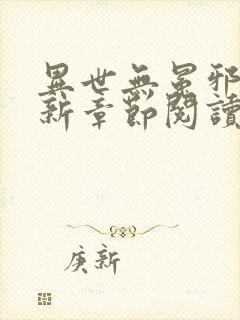 異世無冕邪
新章節閱讀
庚新